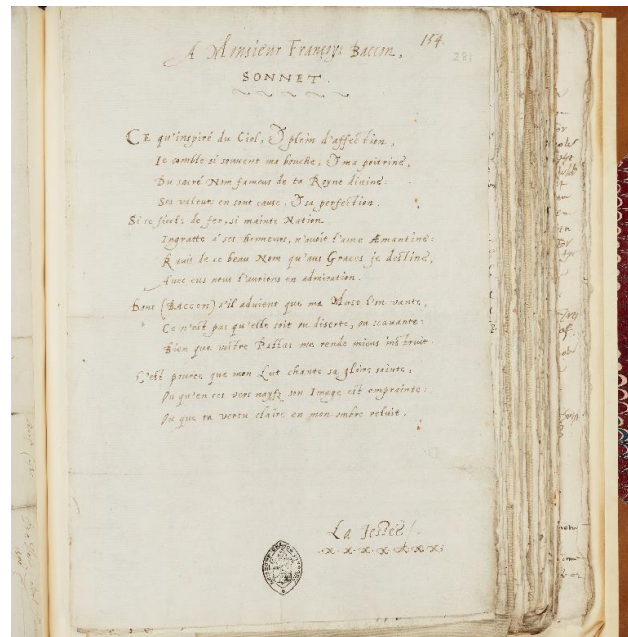 A Monsieur Françoys Baccon,
154.
281
SONNET.
CE qu'inspiré du Ciel, & plein d'affection,
Ie comble si souuent ma bouche, & ma poitrine,
Du sacré Nom fameus de ta Royne diuine
Ses valeurs en sont cause, & sa perfection.
Si ce siecle de fer, si mainte Nation
Ingratte à ses honneurs, n'auoit l'ame Æmantine:
Rauis de ce beau Nom qu'aus Graces je destine,
Auec eus nous l'aurions en admiration.
Donc (BACCON) s'il aduient que ma Muse l'on vante,
Ce n'est pas qu'elle soit ou diserte, ou sçauante:
Bien que vostre Pallas me rende mieus instruit.
C'est pource que mon Lut chante sa gloire sainte,
Ou qu'en ces vers nayfz son Image est emprainte:
Ou que ta vertu claire en mon ombre reluit.
La Jessée